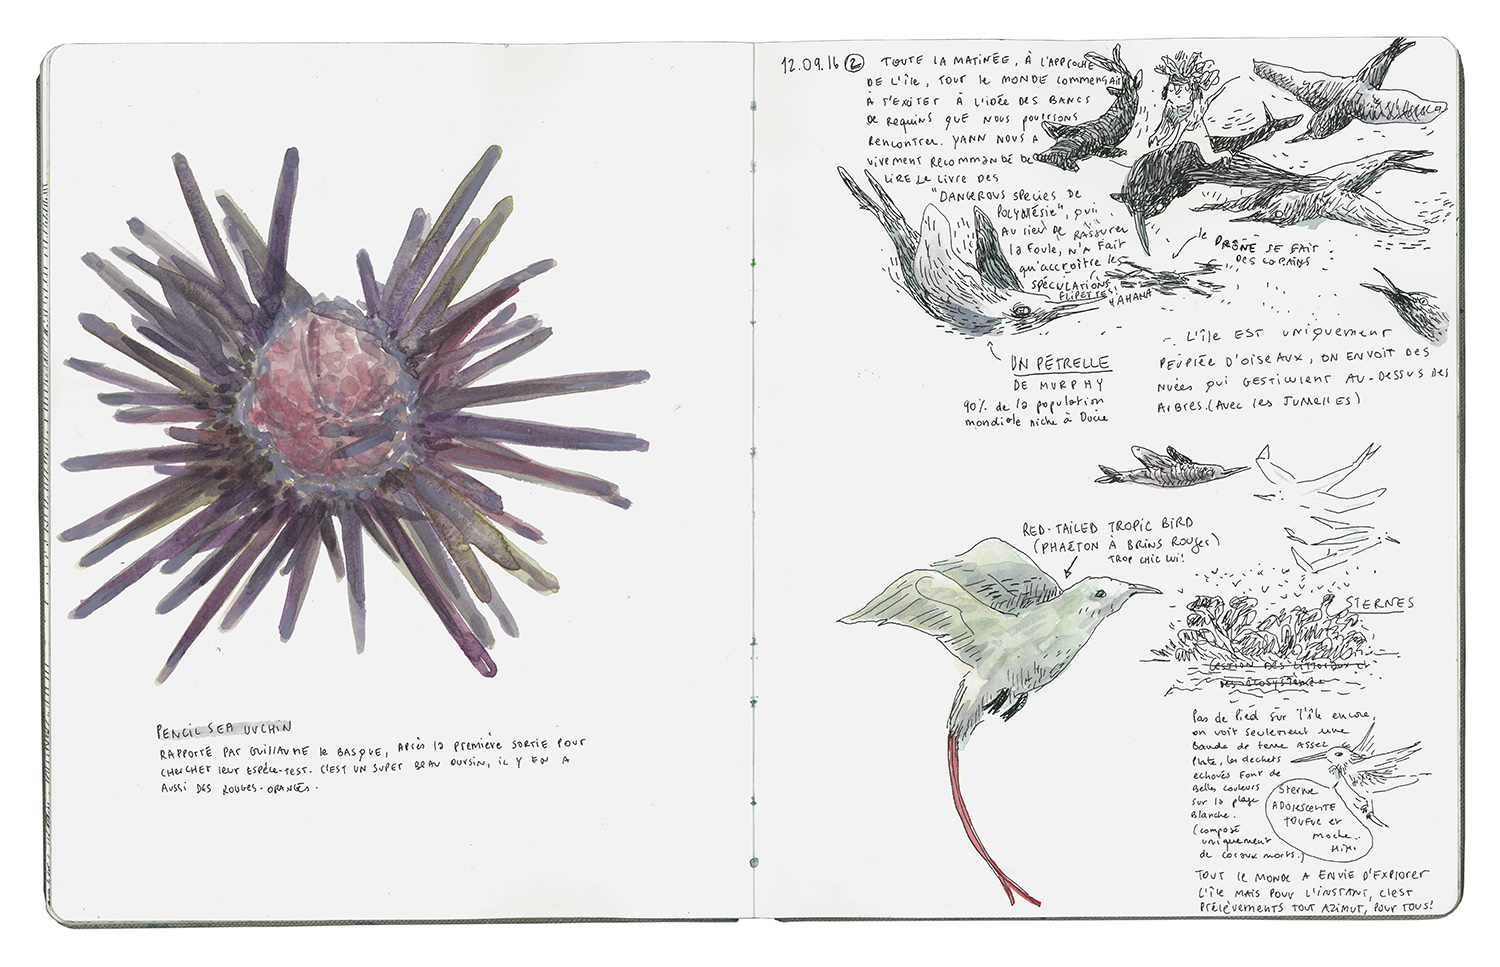 PENCIL SEA URCHIN
RAPPORTÉ PAR GUILLAUME le BASQUE, APRÈS la PREMIÈRE SORTIE POUR
CHERCHER leur ESPÈCE-TEST. C'EST UN SUPER BEAU OURSIN, IL Y EN A
AUSSI DES ROUGES-ORANGÉS.
12.09.16 2 TOUTE LA MATINÉE, À L'APPROCHE
DE L'ÎLE, TOUT le MONDE COMMENÇAIT
À S'EXCITER À L'IDÉE DES BANCS
DE REQUINS QUE NOUS POURRIONS
RENCONTRER. YANN NOUS A
VIVEMENT RECOMMANDÉ DE
LIRE LE LIVRE DES
"DANGEROUS SPECIES DE
POLYNÉSIE", QUI
AU LIEU DE RASSURER
LA FOULE, N'A FAIT
QU'ACCROÎTRE LES
SPÉCULATIONS
FLIPETTES!
HAHAHA
le DRÔNE SE FAIT
DES COPAINS
UN PETRELLE
DE MURPHY
90% de la population
mondiale niche à Ducie
L'ÎLE EST UNIQUEMENT
PEUPLÉE D'OISEAUX, ON EN VOIT DES
NUÉES QUI GESTICULENT AU-DESSUS DES
ARBRES. (AVEC LES JUMELLES)
RED-TAILED TROPIC BIRD
(PHAÉTON À BRINS ROUGES)
TROP CHIC LUI!
STERNES
GESTION DES LITTORAUX ET
DES ÉCOSYSTÈMES
Pas de Pied sur l'île encore,
on voit seulement une
Bande de terre ASSEZ
Plate, les dechets
echoués font de
Belles couleurs
sur la plage
Blanche.
(composé
uniquement
de coraux morts.)
Sterne
ADOLESCENTE
TOUFUE et
moche..
HiHi
TOUT le MONDE A ENVIE D'EXPLORER
L'ÎLE MAIS POUR L'INSTANT, C'EST
PRÉLÈVEMENTS TOUT AZIMUT, POUR TOUS!